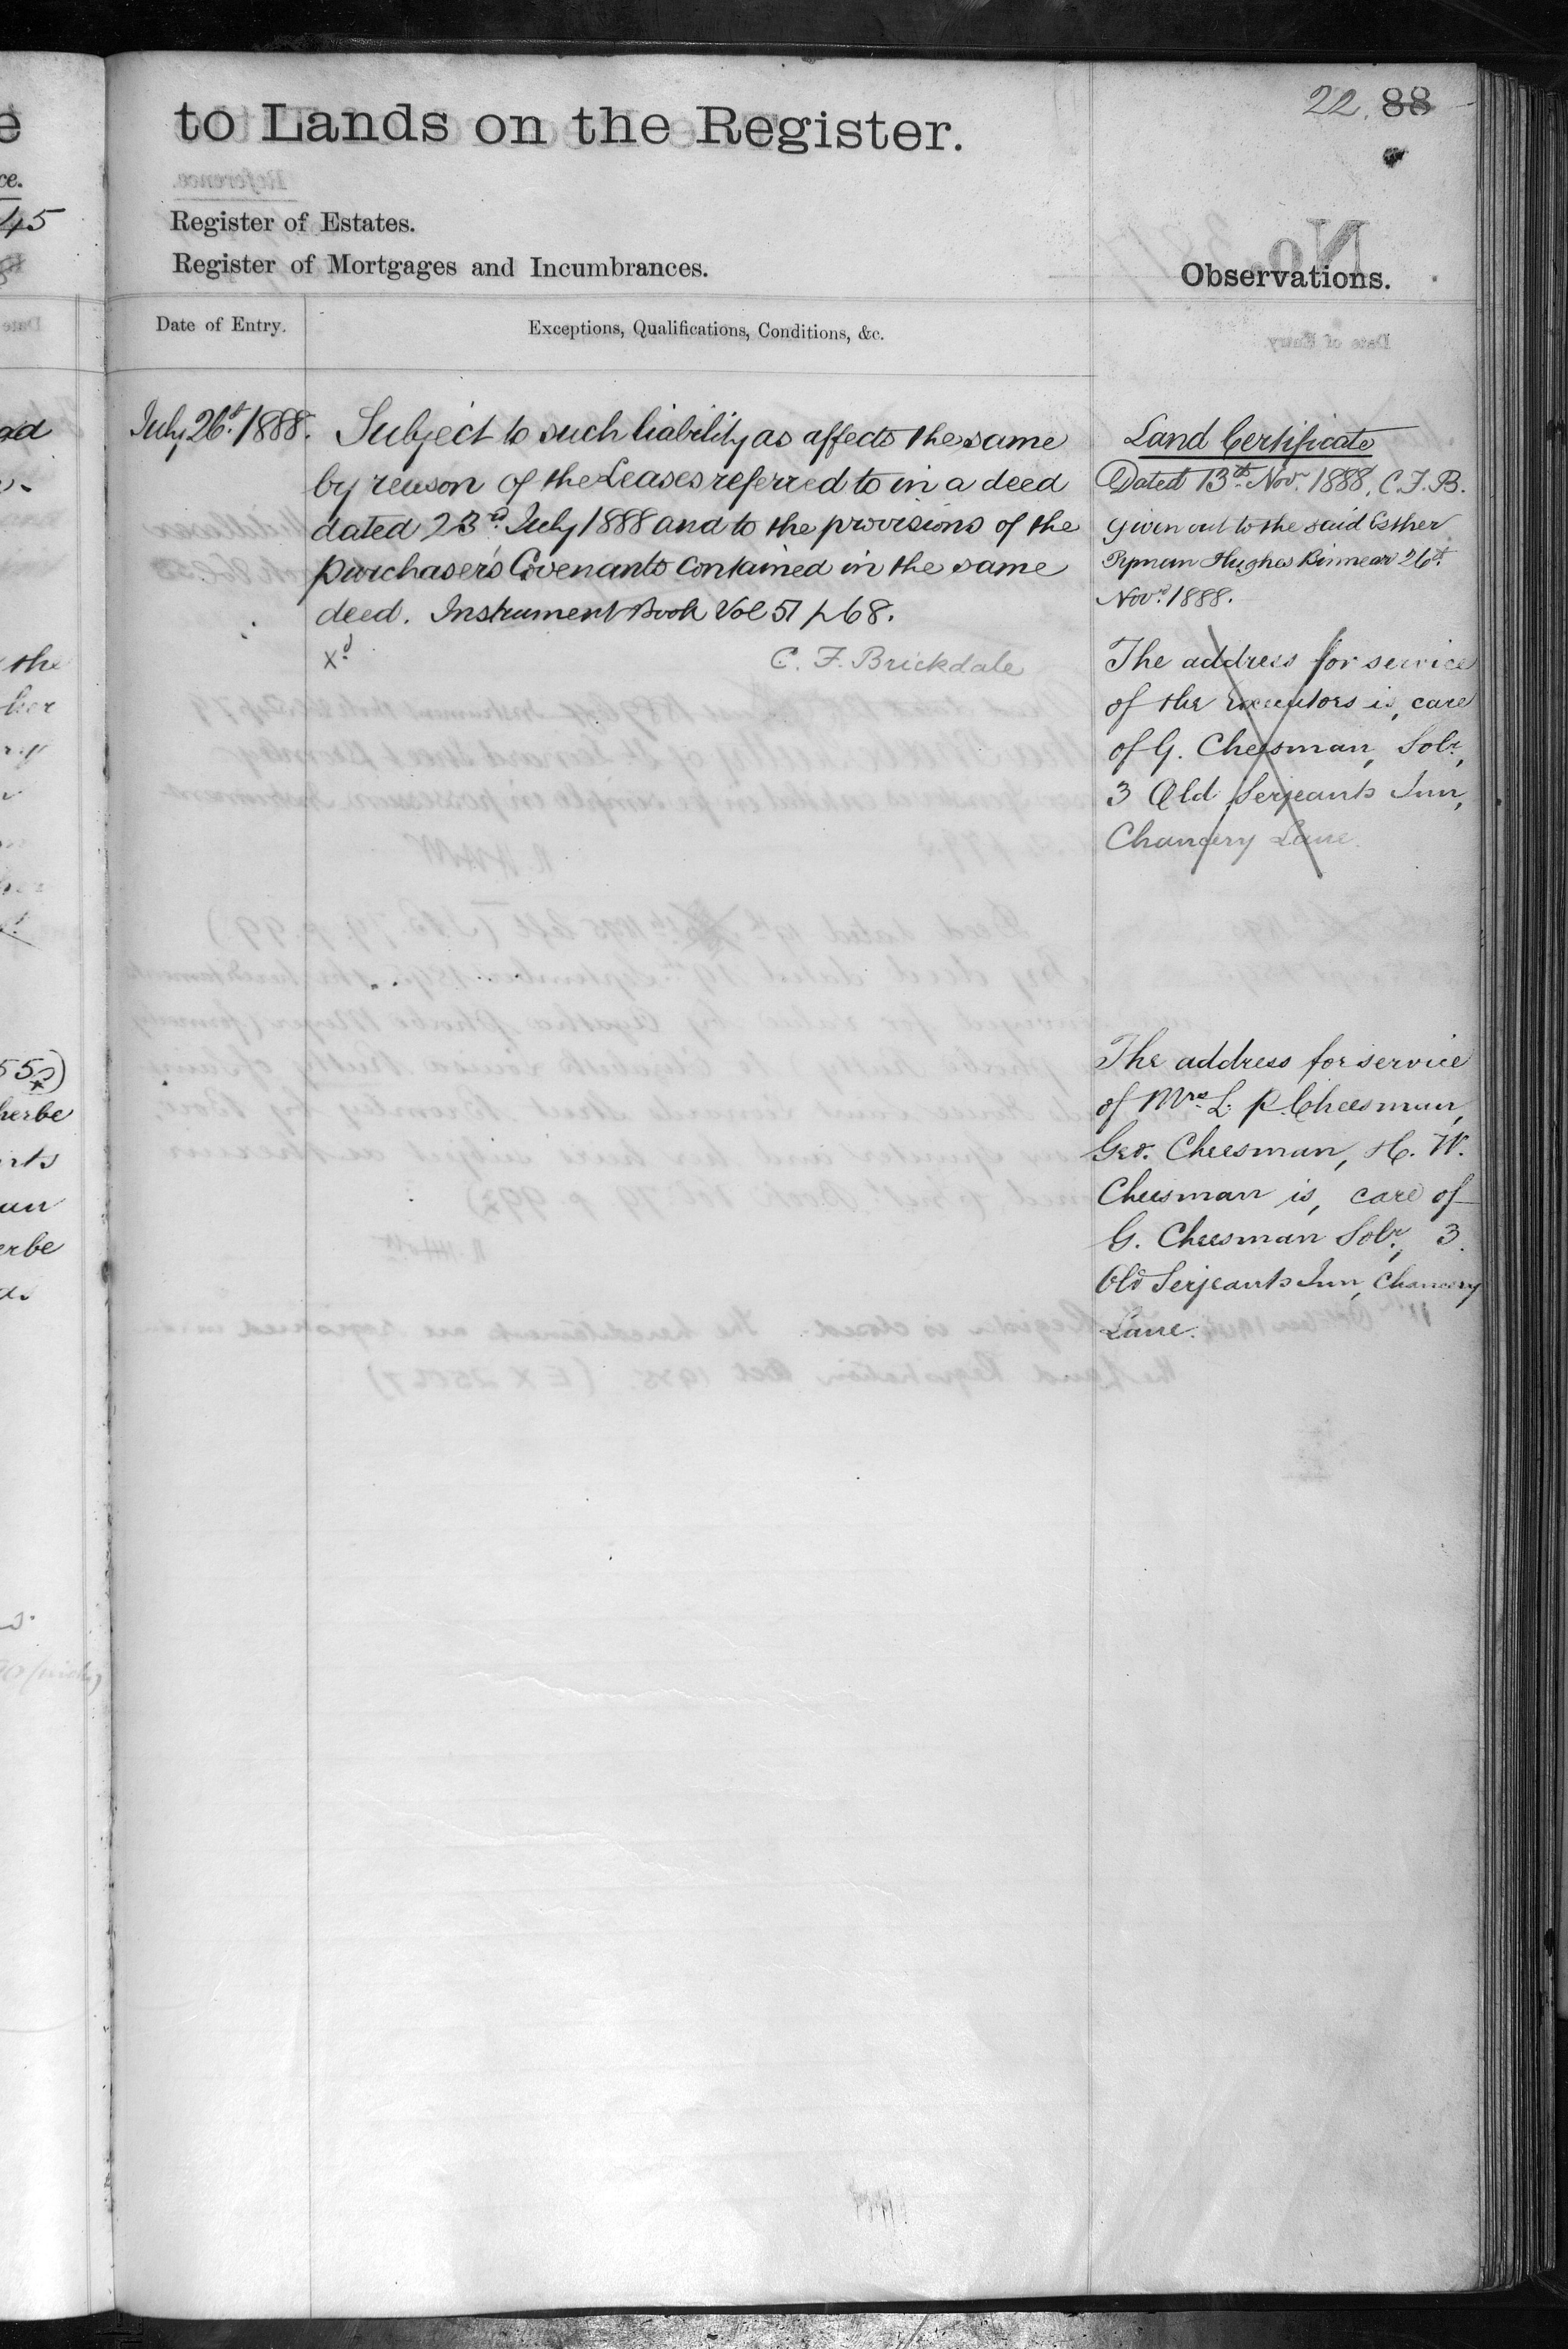 22. 88
to Lands on the Register.
Register of Estates.
Register of Mortgages and Incumbrances.
Observations.
Date of Entry.
Exceptions, Qualifications, Conditions, &c.
July 26th 1888.
Subject to such liability as affects the same
by reason of the Leases referred to in a deed
dated 23rd July 1888 and to the provisions of the
purchaser's Covenants contained in the same
deed. Instrument Book Vol 51 p 68.
Xd
C. F. Brickdale
Land Certificate
Dated 13th Novr 1888. C.F.B.
Given out to the said Esther
Hughes Kinnear 26th
Novr 1888.
The address for service
of the executors is, care
of G. Cheesman, Solr,
3 Old Serjeants Inn,
Chancery Lane.
The address for service
of Mrs L. P. Cheesman,
Geo. Cheesman, H. W.
Cheesman is, care of
G. Cheesman Solr, 3
Old Serjeants Inn, Chancery
Lane.
45
the
her
herbe
erbe